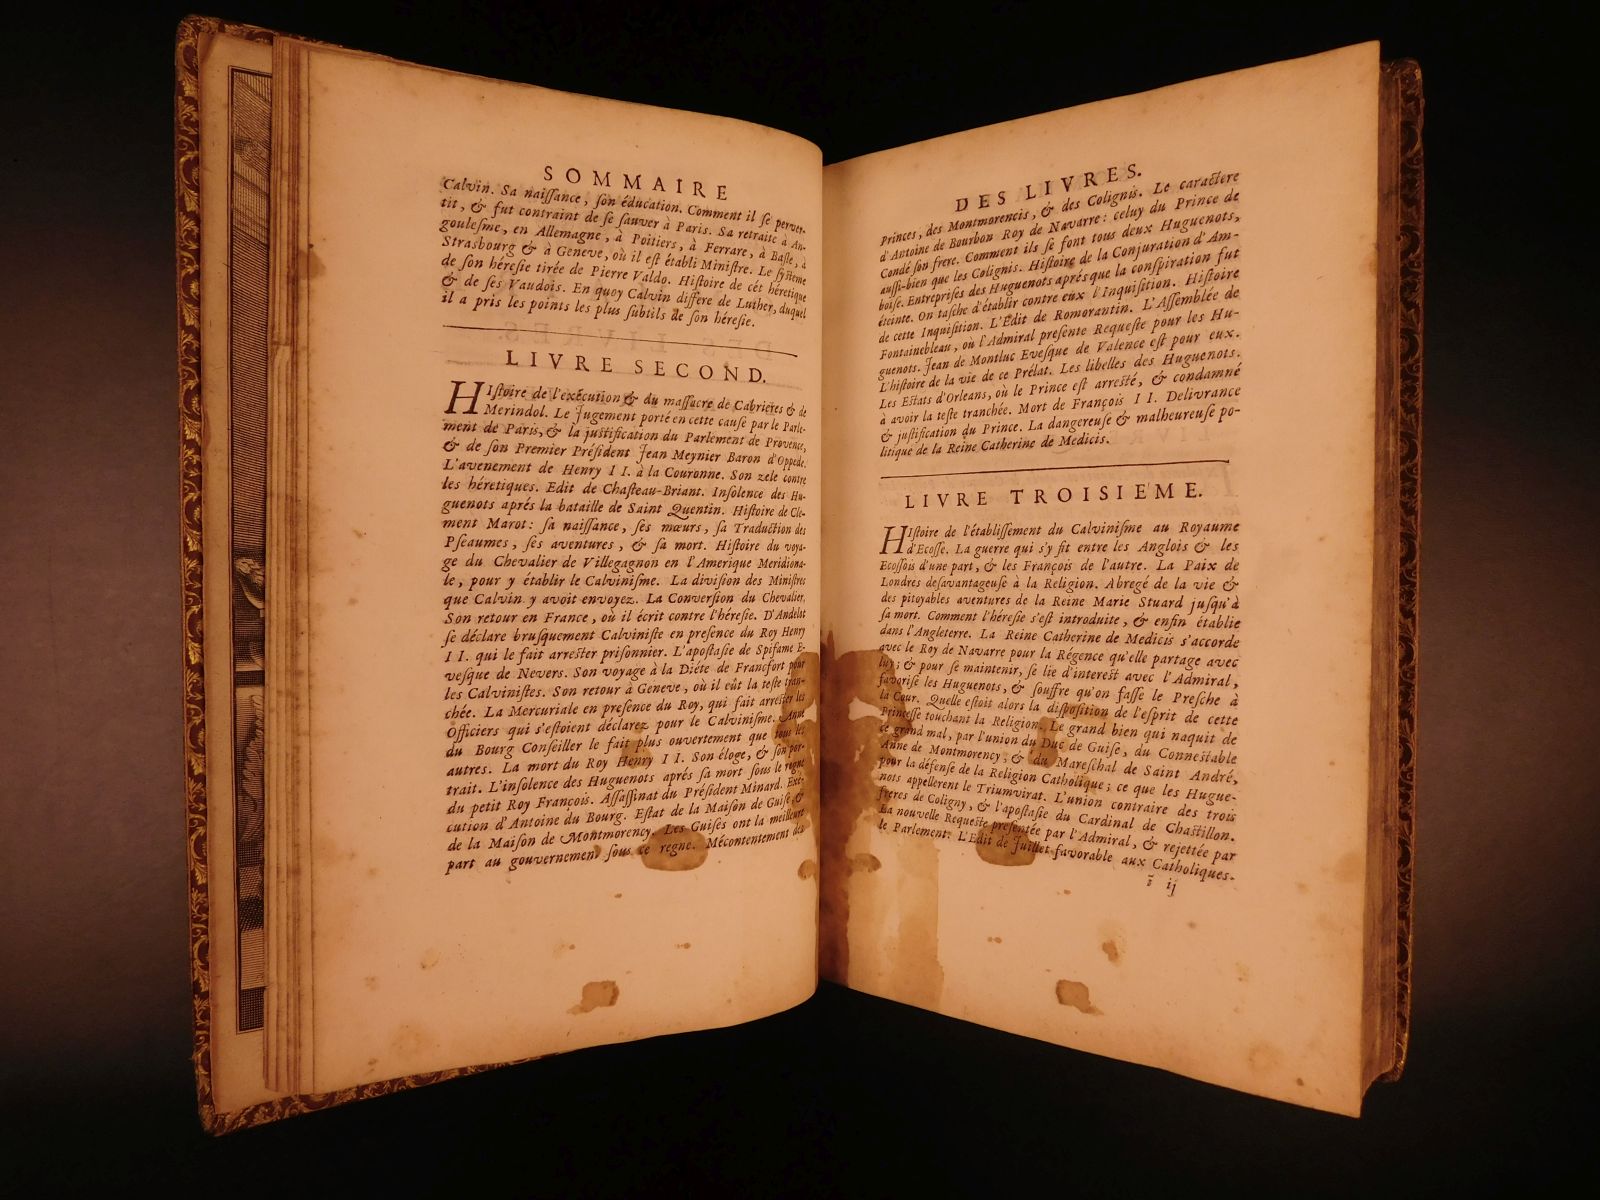 SOMMAIRE
Calvin. Sa naiſſance, ſon éducation. Comment il ſe perver-
tit, & fut contraint de ſe ſauver à Paris. Sa retraite à An-
gouleſme, en Allemagne, à Poitiers, à Ferrare, à Baſle, à
Strasbourg & à Geneve, où il eſt établi Miniſtre. Le ſyſtème
de ſon héreſie tirée de Pierre Valdo. Hiſtoire de cét héretique
& de ſes Vaudois. En quoy Calvin differe de Luther, duquel
il a pris les points les plus ſubtils de ſon héreſie.
LIVRE SECOND.
HIſtoire de l'exécution & du maſſacre de Cabrieres & de
Merindol. Le Jugement porté en cette cauſe par le Parle-
ment de Paris, & la juſtification du Parlement de Provence,
& de ſon Premier Préſident Jean Meynier Baron d'Oppede.
L'avenement de Henry II. à la Couronne. Son zele contre
les héretiques. Edit de Chaſteau-Briant. Inſolence des Hu-
guenots aprés la bataille de Saint Quentin. Hiſtoire de Cle-
ment Marot: ſa naiſſance, ſes mœurs, ſa Traduction des
Pſeaumes, ſes aventures, & ſa mort. Hiſtoire du voya-
ge du Chevalier de Villegagnon en l'Amerique Meridiona-
le, pour y établir le Calviniſme. La diviſion des Miniſtres
que Calvin y avoit envoyez. La Converſion du Chevalier.
Son retour en France, où il écrit contre l'héreſie. D'Andelot
ſe déclare bruſquement Calviniſte en preſence du Roy Henry
II. qui le fait arreſter priſonnier. L'apoſtaſie de Spifame E-
veſque de Nevers. Son voyage à la Diéte de Francfort pour
les Calviniſtes. Son retour à Geneve, où il eût la teſte tran-
chée. La Mercuriale en preſence du Roy, qui fait arreſter les
Officiers qui s'eſtoient déclarez pour le Calviniſme. Anne
du Bourg Conſeiller le fait plus ouvertement que tous les
autres. La mort du Roy Henry II. Son éloge, & ſon por-
trait. L'inſolence des Huguenots aprés ſa mort ſous le regne
du petit Roy François. Aſſaſſinat du Préſident Minard. Exé-
cution d'Antoine du Bourg. Eſtat de la Maiſon de Guiſe, &
de la Maiſon de Montmorency. Les Guiſes ont la meilleure
part au gouvernement ſous ce regne. Mécontentement des
DES LIVRES.
Princes, des Montmorencis, & des Colignis. Le caractere
d'Antoine de Bourbon Roy de Navarre: celuy du Prince de
Condé ſon frere. Comment ils ſe font tous deux Huguenots,
auſſi-bien que les Colignis. Hiſtoire de la Conjuration d'Am-
boiſe. Entrepriſes des Huguenots aprés que la conſpiration fut
éteinte. On taſche d'établir contre eux l'Inquiſition. Hiſtoire
de cette Inquiſition. L'Edit de Romorantin. L'Aſſemblée de
Fontainebleau, où l'Admiral preſente Requeſte pour les Hu-
guenots. Jean de Montluc Eveſque de Valence eſt pour eux.
L'hiſtoire de la vie de ce Prélat. Les libelles des Huguenots.
Les Eſtats d'Orleans, où le Prince eſt arreſté, & condamné
à avoir la teſte tranchée. Mort de François II. Delivrance
& juſtification du Prince. La dangereuſe & malheureuſe po-
litique de la Reine Catherine de Medicis.
LIVRE TROISIEME.
HIſtoire de l'établiſſement du Calviniſme au Royaume
d'Ecoſſe. La guerre qui s'y fit entre les Anglois & les
Ecoſſois d'une part, & les François de l'autre. La Paix de
Londres deſavantageuſe à la Religion. Abregé de la vie &
des pitoyables aventures de la Reine Marie Stuard juſqu'à
ſa mort. Comment l'héreſie s'eſt introduite, & enfin établie
dans l'Angleterre. La Reine Catherine de Medicis s'accorde
avec le Roy de Navarre pour la Régence qu'elle partage avec
luy; & pour ſe maintenir, ſe lie d'intereſt avec l'Admiral,
favoriſe les Huguenots, & ſouffre qu'on faſſe le Preſche à
la Cour. Quelle eſtoit alors la diſpoſition de l'eſprit de cette
Princeſſe touchant la Religion. Le grand bien qui naquit de
ce grand mal, par l'union du Duc de Guiſe, du Conneſtable
Anne de Montmorency, & du Mareſchal de Saint André,
pour la défenſe de la Religion Catholique; ce que les Hugue-
nots appellerent le Triumvirat. L'union contraire des trois
freres de Coligny, & l'apoſtaſie du Cardinal de Chaſtillon.
La nouvelle Requeſte preſentée par l'Admiral, & rejettée par
le Parlement. L'Edit de Juillet favorable aux Catholiques.
ĩ ij